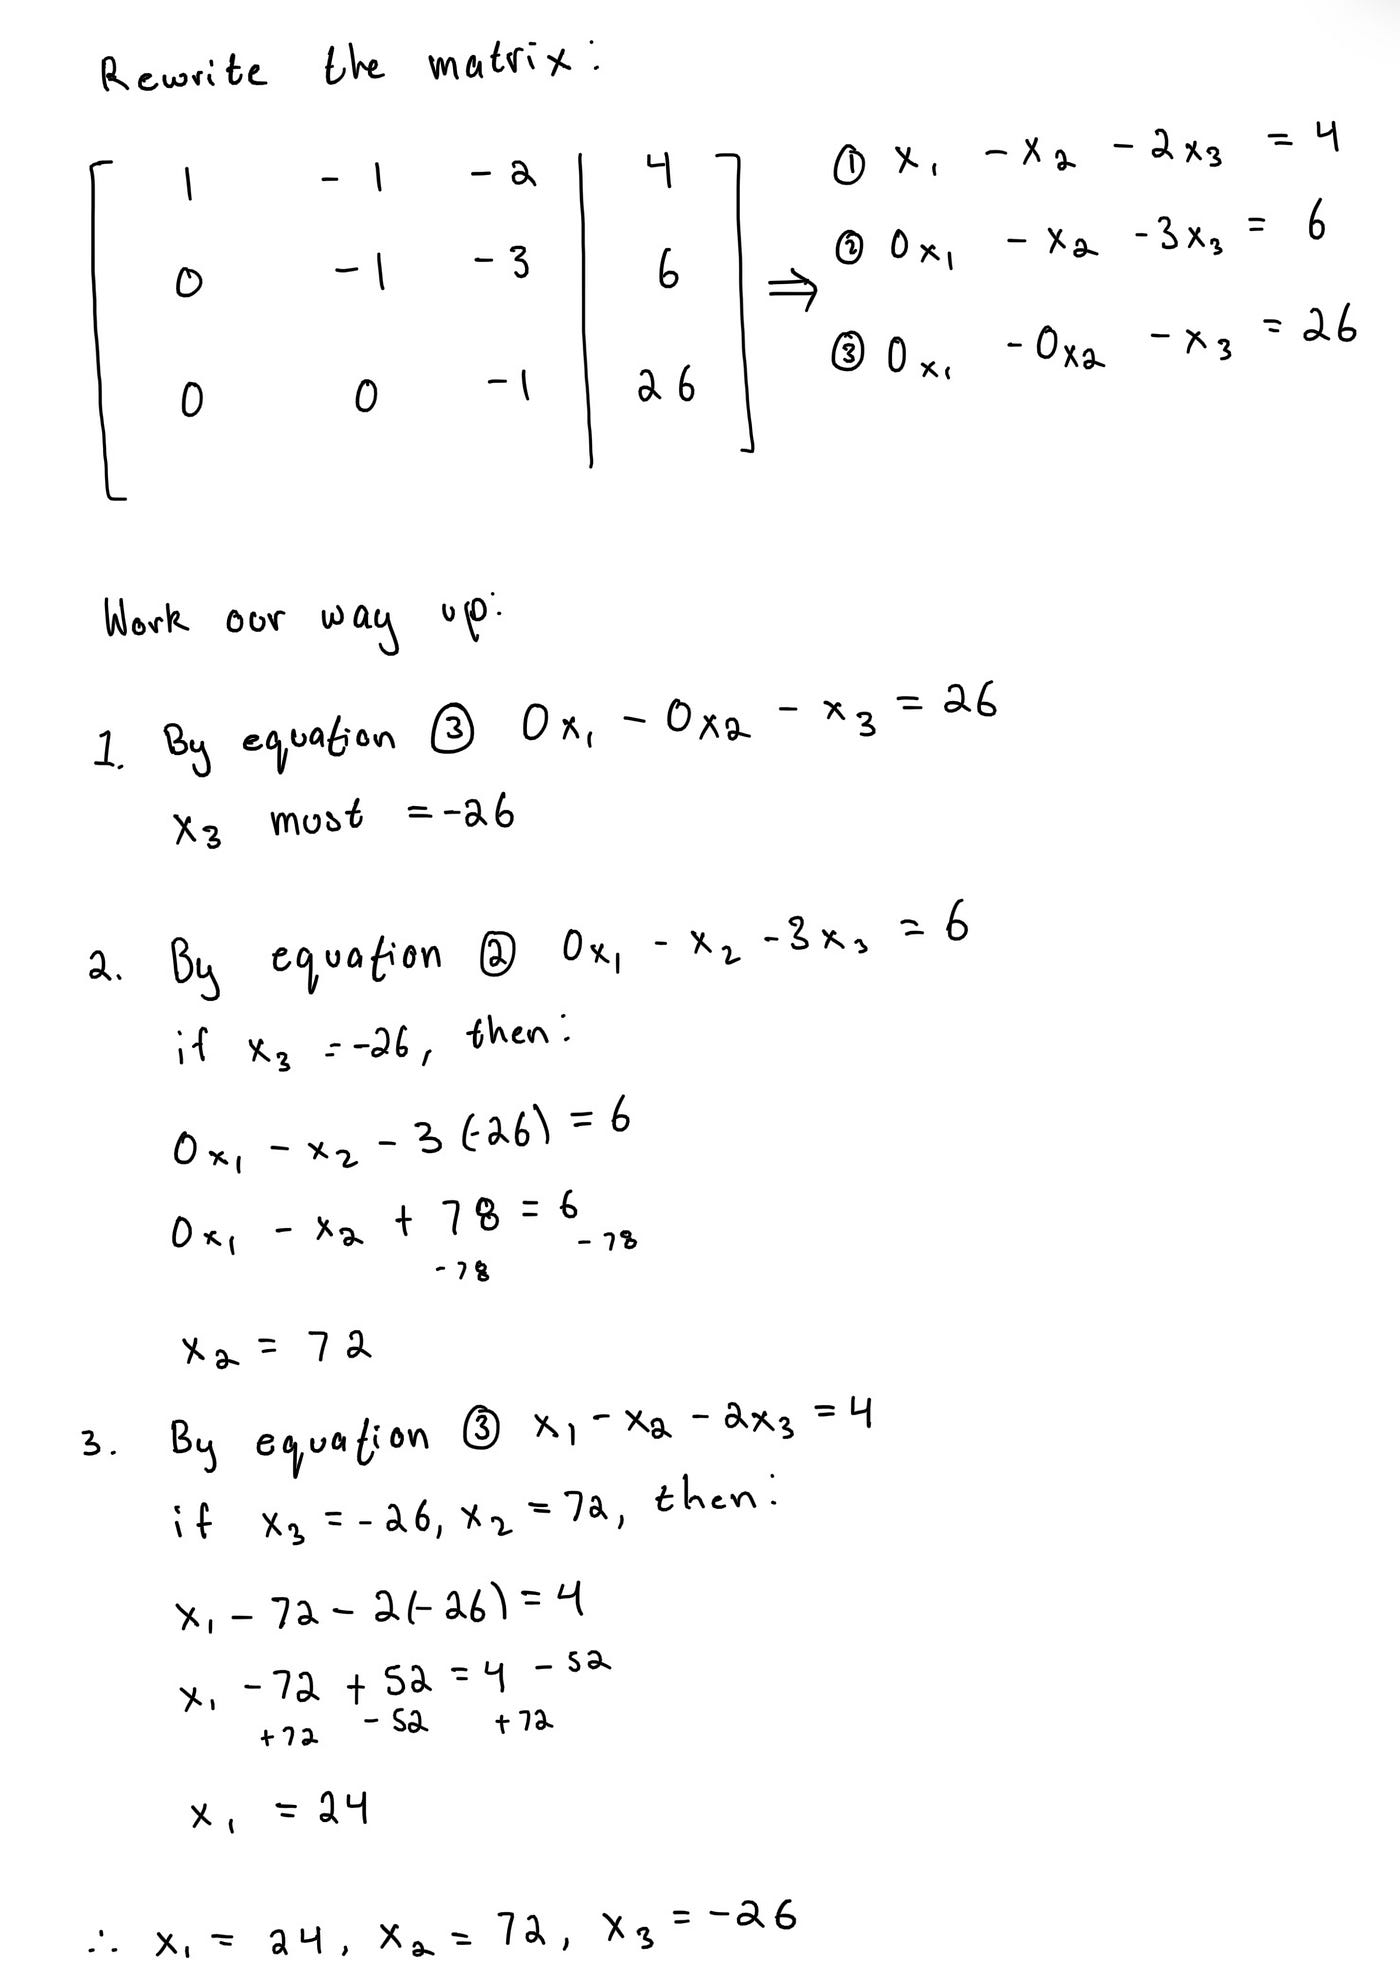 Rewrite the matrix:
1 -1 -2 | 4
0 -1 -3 | 6
0 0 -1 | 26
⇒
① x₁ - x₂ - 2x₃ = 4
② 0x₁ - x₂ - 3x₃ = 6
③ 0x₁ - 0x₂ - x₃ = 26
Work our way up:
1. By equation ③ 0x₁ - 0x₂ - x₃ = 26
x₃ must = -26
2. By equation ② 0x₁ - x₂ - 3x₃ = 6
if x₃ = -26, then:
0x₁ - x₂ - 3(-26) = 6
0x₁ - x₂ + 78 = 6 - 78
- 78
x₂ = 72
3. By equation ③ x₁ - x₂ - 2x₃ = 4
if x₃ = -26, x₂ = 72, then:
x₁ - 72 - 2(-26) = 4
x₁ - 72 + 52 = 4 - 52
+72 - 52 +72
x₁ = 24
∴ x₁ = 24, x₂ = 72, x₃ = -26